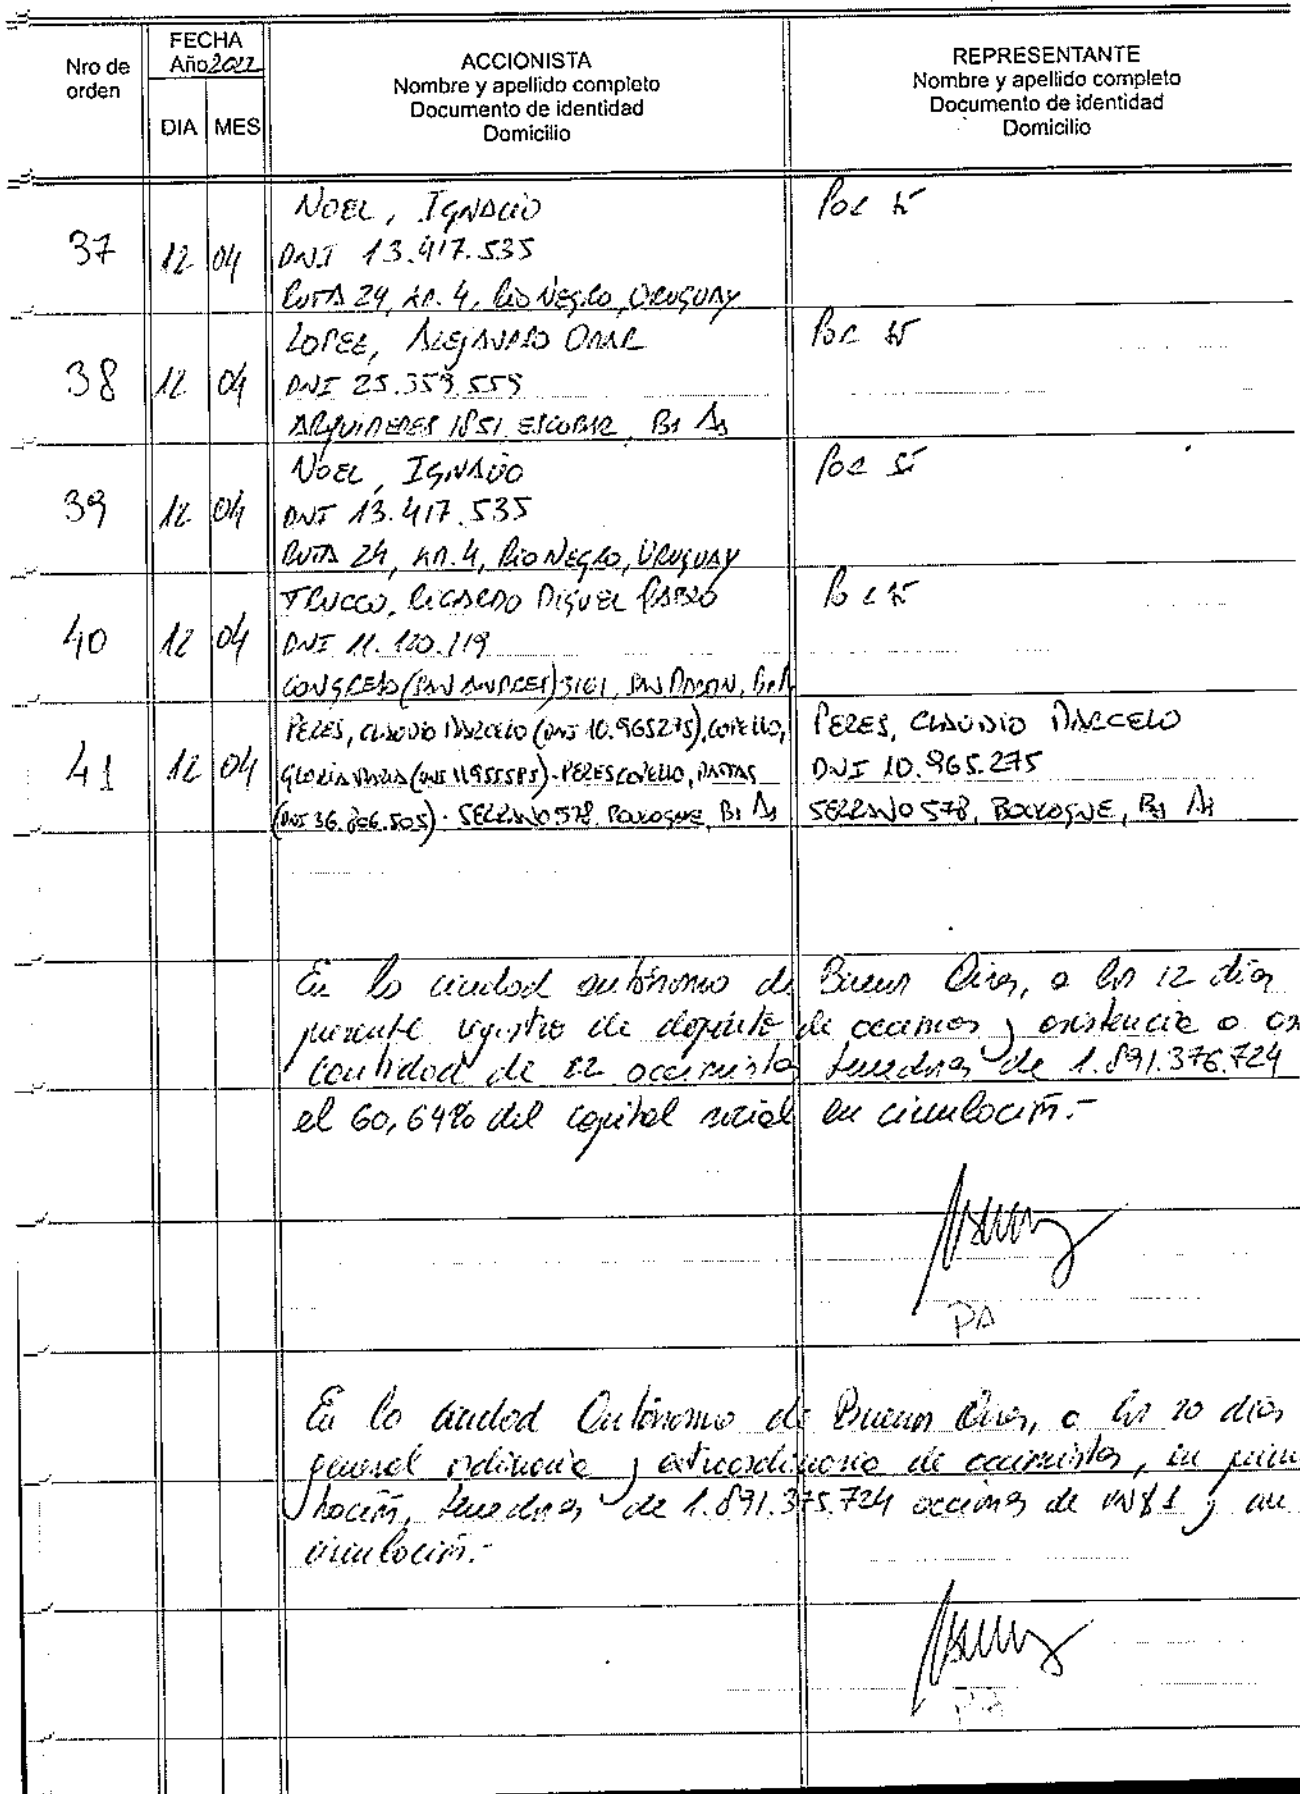 Nro de orden
FECHA
Año 2022
DIA MES
ACCIONISTA
Nombre y apellido completo
Documento de identidad
Domicilio
REPRESENTANTE
Nombre y apellido completo
Documento de identidad
Domicilio
37 12 04
NOEL, IGNACIO
DNI 13.417.535
RUTA 24, KM. 4, RIO NEGRO, URUGUAY
POR SI
38 12 04
LOPEZ, ALEJANDRO OMAR
DNI 25.359.559
ARQUIMEDES 1851 ESCOBAR, Bs As
POR SI
39 12 04
NOEL, IGNACIO
DNI 13.417.535
RUTA 24, KM. 4, RIO NEGRO, URUGUAY
POR SI
40 12 04
TRUCCO, RICARDO MIGUEL PABLO
DNI 11.120.119
CONGRESO (SAN ANDRES) 3161, SAN MARTIN, Bs A
POR SI
41 12 04
PERES, CLAUDIO MARCELO (DNI 10.965275), COPELLO,
GLORIA MARIA (DNI 11955585) - PERES COPELLO, MATIAS
(DNI 36.806.505) - SERRANO 578, BOULOGNE, Bs As
PERES, CLAUDIO MARCELO
DNI 10.965.275
SERRANO 578, BOULOGNE, Bs As
En la ciudad autónoma de Buenos Aires, a los 12 días
presente registro de depósito de acciones y asistencia a
cantidad de accionistas tenedores de 1.891.376.724
el 60,64% del capital social en circulación.-
PA
En la ciudad Autónoma de Buenos Aires, a los 20 días
general ordinaria y extraordinaria de accionistas, en
tenedores de 1.891.375.724 acciones de VN$1 y un
circulación.-
PA